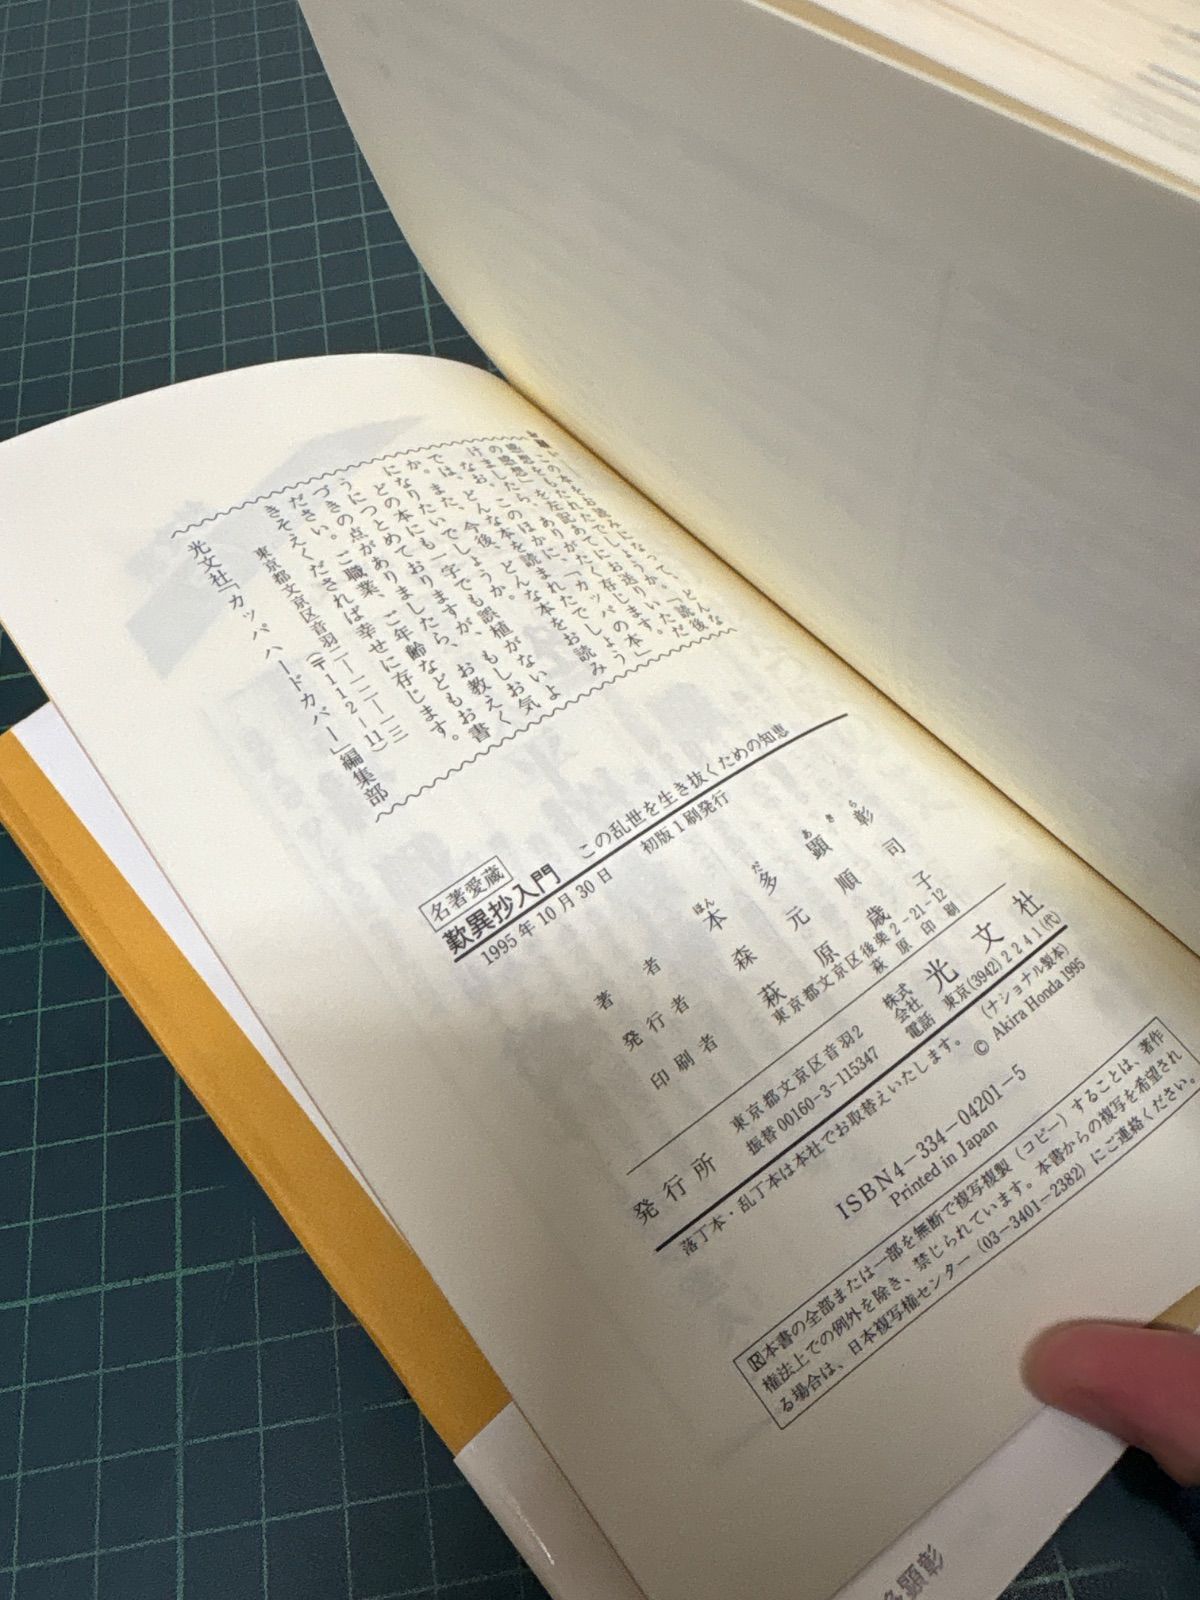 お願い この本をお読みになって、どんな
感想をもたれたでしょうか。「読後
の感想」を左記あてにお送りいただ
けましたら、ありがたく存じます。
なお、このほかに、「カッパの本」
では、どんな本を読まれたでしょう
か。また、今後、どんな本をお読み
になりたいでしょうか。
どの本にも一字でも誤植がないよ
うにつとめておりますが、もしお気
づきの点がありましたら、お教えく
ださい。ご職業、ご年齢などもお書
きそえくだされば幸せに存じます。
東京都文京区音羽二ー一二ー一三
(〒112-11)
光文社「カッパハードカバー」編集部
名著愛蔵
歎異抄入門 この乱世を生き抜くための知恵
1995年10月30日 初版1刷発行
著者 本多顕彰
ほん だ あき ら
発行者 森元順司
印刷者 萩原歳子
東京都文京区後楽2-21-12
萩原印刷
発行所
東京都文京区音羽2
振替00160-3-115347
株式会社 光文社
電話 東京(3942)2241(代)
落丁本・乱丁本は本社でお取替えいたします。 (ナショナル製本)
© Akira Honda 1995
ISBN4-334-04201-5
Printed in Japan
Ⓡ本書の全部または一部を無断で複写複製(コピー)することは、著作
権法上での例外を除き、禁じられています。本書からの複写を希望され
る場合は、日本複写権センター(03-3401-2382)にご連絡ください。